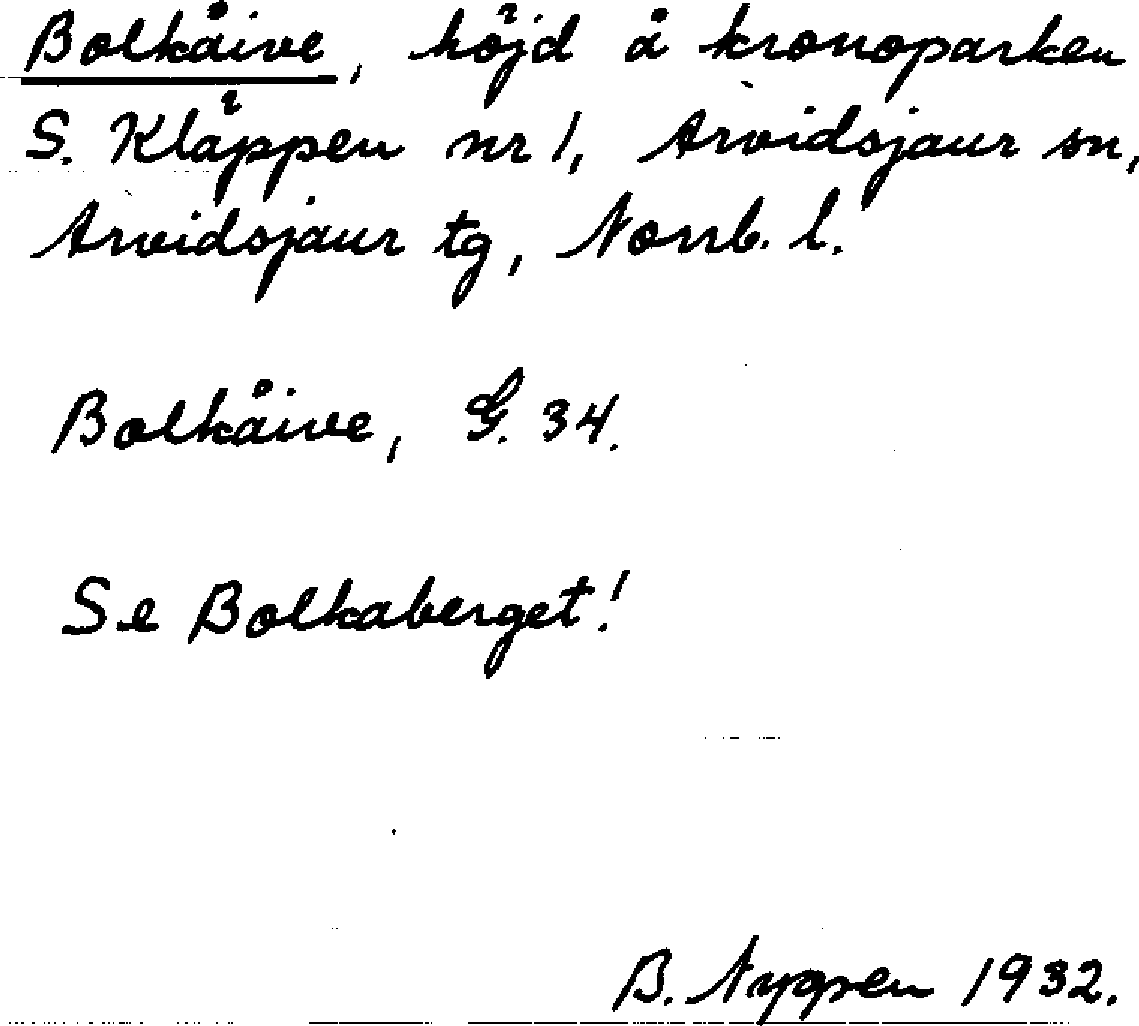 Bolkåive, höjd å kronoparken
S. Kläppen nr 1, Arvidsjaur sn,
Arvidsjaur tg, Norrb. l.
Bolkåive, G. 34.
Se Bolkaberget!
B. Nygren 1932.